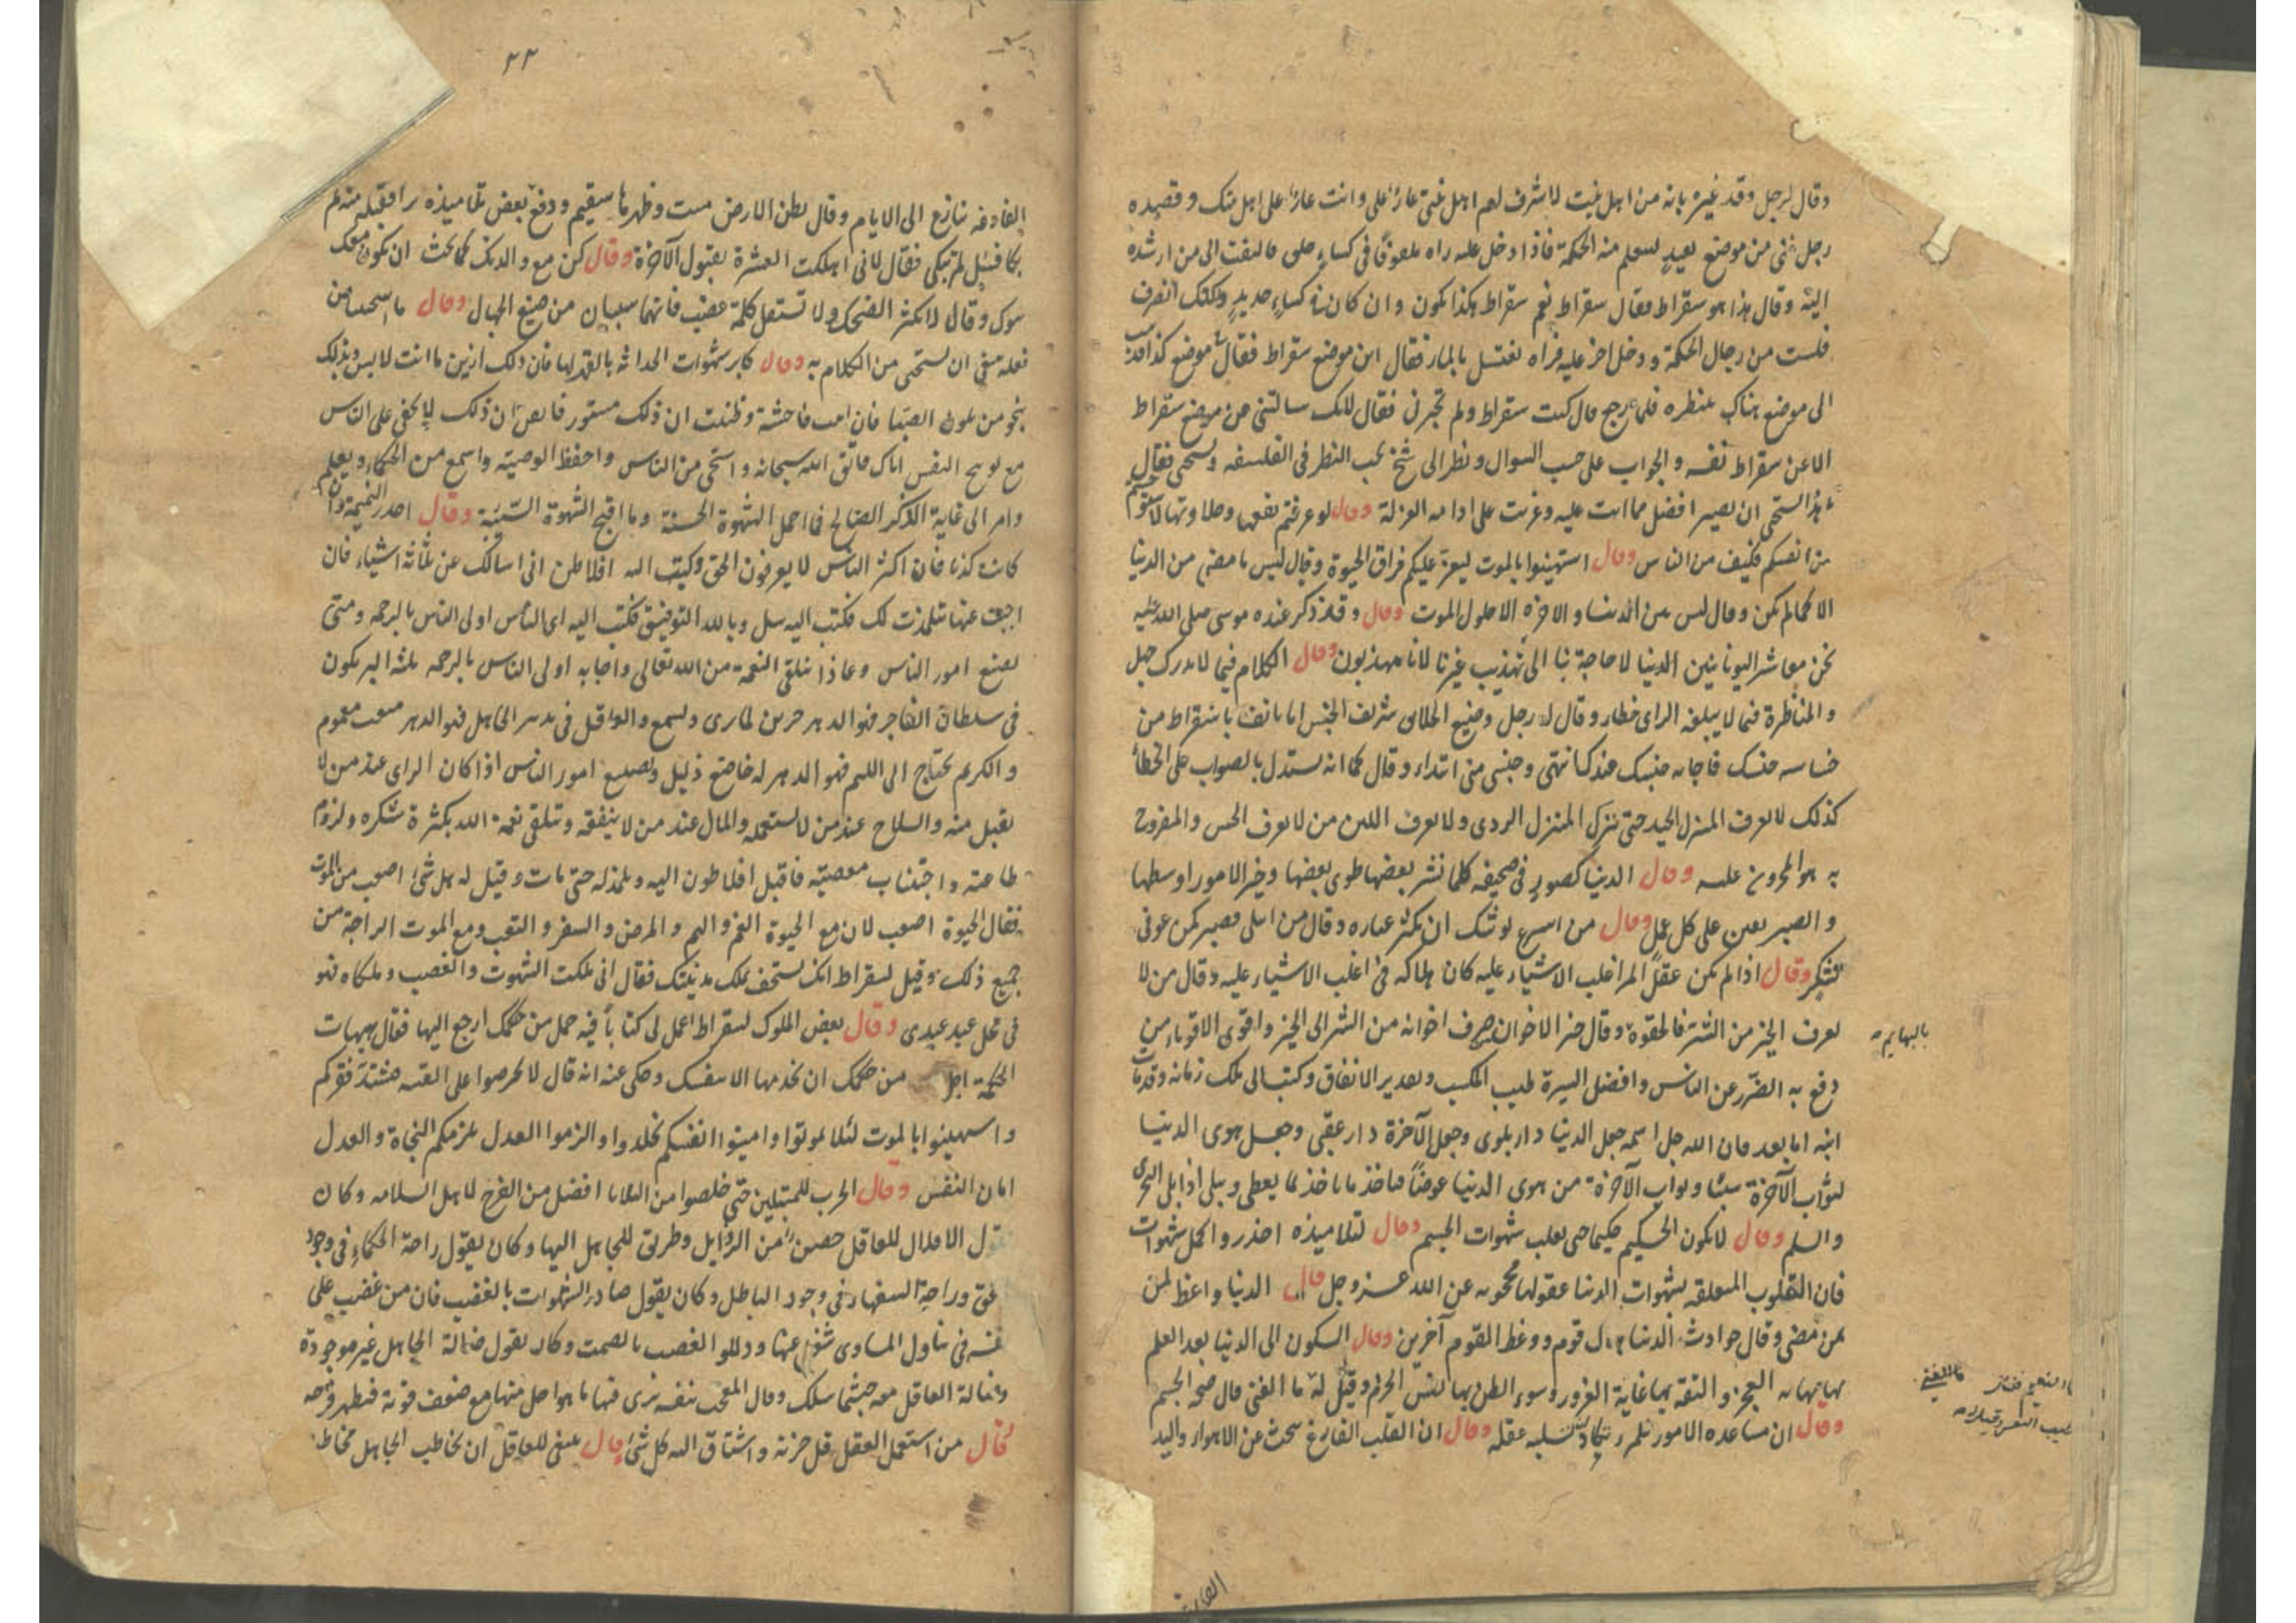 وقال لرجل وقد عيره بانه من اهل بيت لا شرف لهم اهل بيتي عار علي وانت عار على اهل بيتك وقصده
رجل غني من موضع بعيد ليتعلم منه الحكمة فاذا دخل عليه راه ملفوفا في كساء فالتفت الى من ارشده
اليه وقال هذا هو سقراط فقال سقراط نعم سقراط هكذا يكون وان كان في كساء جديد ولكنك انصرف
فلست من رجال الحكمة ودخل اخر عليه فراه يغتسل بالماء فقال اين موضع سقراط فقال موضع كذا
الى موضع هناك ينظره فلما رجع قال كنت سقراط ولم تخبرني فقال لانك سالتني عن موضع سقراط
لا عن سقراط نفسه والجواب على حسب السوال ونظر الى شيخ يحب النظر في الفلسفه ويستحي فقال
يا هذا تستحي ان تصير افضل مما انت عليه وعزيت على ادامه العزلة وقال لو عرفتم نفعها وحلاوتها
من انفسكم فكيف من الناس وقال استهينوا بالموت ليعز عليكم فراق الحيوة وقال ليس ما مضى من الدنيا
الا كما لم يكن وقال ليس بين الدنيا والاخرة الا حلول الموت وقال وقد ذكر عنده موسى صلى الله عليه
نحن معاشر اليونانيين الدنيا لا حاجة بنا الى تهذيب غيرنا لانا مهذبون وقال الكلام فيما لا يدرك جهل
والمناظرة فيما لا يبلغه الراى خطا وقال له رجل وضيع الخلائق شريف الجنس اما تانف يا سقراط من
خساسه جنسك فاجابه جنسك عندك انتهى وجنسي مني ابتداء وقال كما انه يستدل بالصواب على الخطأ
كذلك لا يعرف المنزل الجيد حتى ينزل المنزل الردى ولا يعرف اللين من لا يعرف الخشن والمفروح
به هو المحزون عليه وقال الدنيا كصور في صحيفه كلما نشر بعضها طوى بعضها وخير الامور اوسطها
والصبر يعين على كل عمل وقال من اسرع يوشك ان يكثر عثاره وقال من ابتلى فصبر كمن عوفى
فشكر وقال اذا لم يكن عقل المرء اغلب الاشياء عليه كان هلاكه في اغلب الاشياء عليه وقال من لا
يعرف الخير من الشر فالحقوه وقال خير الاخوان من صرف اخوانه من الشر الى الخير واقوى الاقوياء من
بالبهايم
دفع به الضرر عن الناس وافضل السيرة طيب المكسب وتقدير الانفاق وكتب الى ملك زمانه وقد مات
ابنه اما بعد فان الله جل اسمه جعل الدنيا دار بلوى وجعل الآخرة دار عقبى وجعل بلوى الدنيا
لثواب الآخرة سببا وثواب الآخرة من بلوى الدنيا عوضا فياخذ ما ياخذ لما يعطى ويبلى اذا بلى ليجزى
والسلم وقال لا يكون الحكيم حكيما حتى يغلب شهوات الجسم وقال لتلاميذه احذروا اكل شهوات
فان القلوب المتعلقه بشهوات الدنيا عقولها محجوبه عن الله عز وجل وقال الدنيا واعظ لمن
بمن مضى وقال حوادث الدنيا هلاك قوم ووعظ القوم آخرين وقال السكون الى الدنيا بعد العلم
بها نهاية العجز والثقة بها غاية الغرور وسوء الظن بها ليس الحزم وقيل له ما الغنى قال صحه الجسم
وقال ان ساعده الامور فلم يكد يسلبه عقله وقال ان القلب الفارغ يبحث عن الاهواء واليد
٢٣
الفارغه تنازع الى الايام وقال بطن الارض ميت وظهرها سقيم ودفع بعض تلاميذه فقبله منه ثم
بكى فقيل لم تبكي فقال لاني اهلكت العشرة بقبول الآخرة وقال كن مع والديك كما تحب ان يكون معك
بنوك وقال لا تكثر الضحك ولا تستعمل كلمة غضب فانهما سببان من صنيع الجهال وقال ما استحييت من
فعله فينبغي ان تستحي من الكلام به وقال كابر شهوات الحداثه بالقهر لها فان ذلك ازين ما انت لابس وبذلك
تنجو من تلون الصبا فان اتيت فاحشة وظننت ان ذلك مستور فايقن ان ذلك لا يخفى على الناس
مع توبيخ النفس اياك فاتق الله سبحانه واستحي من الناس واحفظ الوصية واسمع من الحكماء وتعلم
وامر الى غاية الذكر الصالح فما اجمل الشهوة الحسنة وما اقبح الشهوة السيئة وقال احذر النميمة وان
كانت كذبا فان اكثر الناس لا يعرفون الحق وكتب اليه افلاطن اني اسالك عن ثلثة اشياء فان
اجبت عنها تتلمذت لك فكتب اليه سل وبالله التوفيق فكتب اليه اى الناس اولى الناس بالرحمه ومتى
تضيع امور الناس وبماذا نتلقى النعمة من الله تعالى واجابه اولى الناس بالرحمه ثلثة البر يكون
في سلطان الفاجر فهو الدهر حزين لما يرى ويسمع والعاقل في تدبير الجاهل فهو الدهر متعب مغموم
والكريم يحتاج الى اللئيم فهو الدهر له خاضع ذليل وتضيع امور الناس اذا كان الراى عند من لا
يقبل منه والسلاح عند من لا يستعمله والمال عند من لا ينفقه وتتلقى نعمة الله بكثرة شكره ولزوم
طاعته واجتناب معصيته فاقبل افلاطون اليه وتلمذ له حتى مات وقيل له هل شئ اصعب من الموت
فقال الحيوة اصعب لان مع الحيوة الغم والهم والمرض والسفر والتعب ومع الموت الراحة من
جميع ذلك وقيل لسقراط انك تستخف بملك مدينتك فقال اني ملكت الشهوت والغضب وملكاه فهو
في محل عبد عبدى وقال بعض الملوك لسقراط اعمل لى كتابا فيه جمل من حكمك ارجع اليها فقال هيهات
الحكمة اجل من حكمك ان تخدمها الا بنفسك وحكى عنه انه قال لا تحرصوا على القنيه فتشتد فقركم
واستهينوا بالموت لئلا تموتوا واميتوا انفسكم تخلدوا والزموا العدل يلزمكم النجاة والعدل
امان النفس وقال الحرب للمبتلين حتى خلصوا من البلايا افضل من الفرح لاهل السلامه وكان
يقول الاقلال للعاقل حصن من الرذايل وطريق للجاهل اليها وكان يقول راحة الحكماء في وجود
الحق وراحة السفهاء في وجود الباطل وكان يقول صادر الشهوات بالغضب فان من غضب على
نفسه في تناول المساوى شغل عنها وذللوا الغضب بالصمت وكان يقول ضالة الجاهل غير موجودة
وضالة العاقل معه حيثما سلك وقال المعجب بنفسه يرى فيها ما هو اجل منها مع ضعف قوته فيظهر فرحه
فقال من استعمل العقل قل حزنه واشتاق اليه كل شئ وقال ينبغي للعاقل ان يخاطب الجاهل مخاطبة